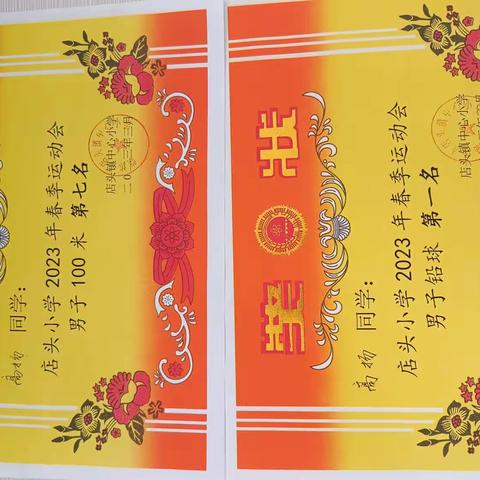 高扬 同学:
店头小学2023年春季运动会
男子100米 第七名
店头镇中心小学
二〇二三年三月
奖状
高扬 同学:
店头小学2023年春季运动会
男子铅球 第一名
店头镇中心小学